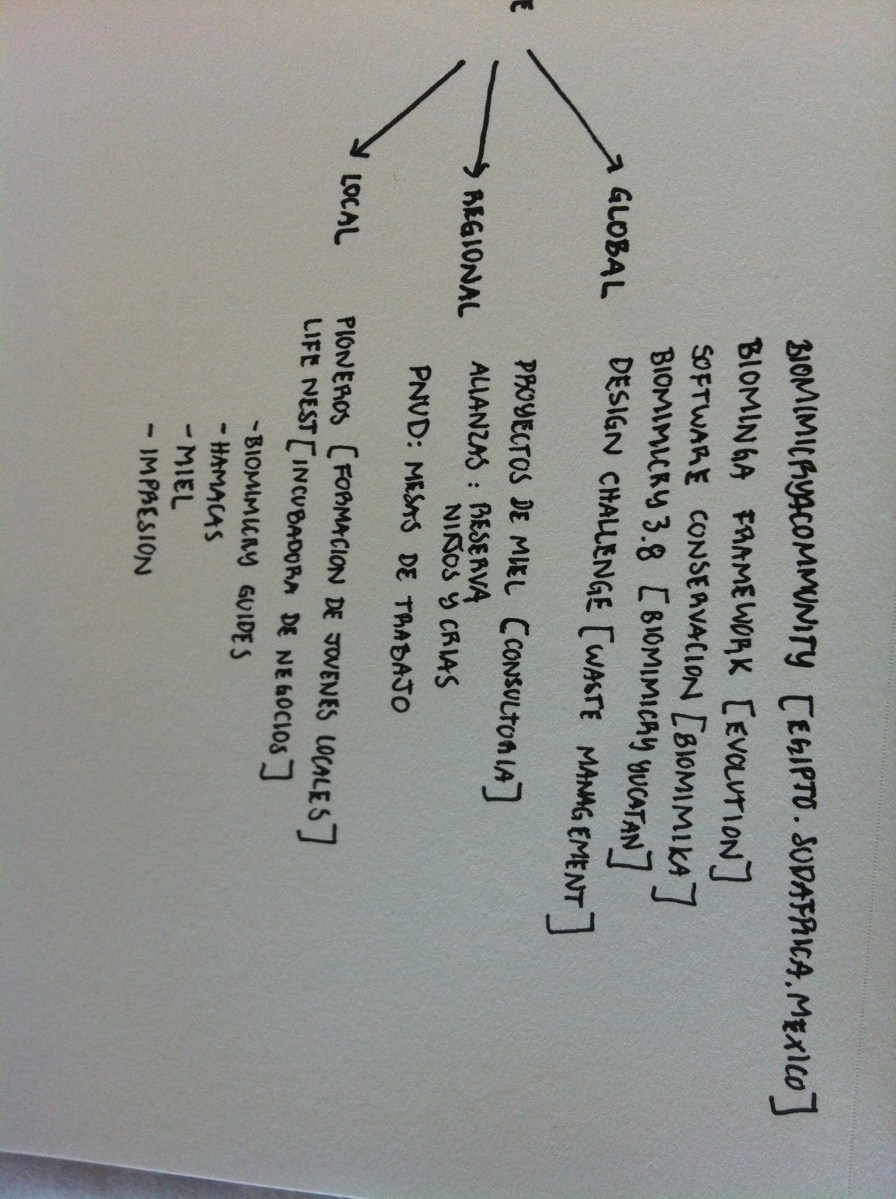 E
GLOBAL
BIOMIMICRY4COMMUNITY [EGIPTO. SUDAFRICA. MEXICO]
BIOMINGA FRAMEWORK [EVOLUTION]
SOFTWARE CONSERVACION [BIOMIMIKA]
BIOMIMICRY 3.8 [BIOMIMICRY YUCATAN]
DESIGN CHALLENGE [WASTE MANAGEMENT]
REGIONAL
PROYECTOS DE MIEL [CONSULTORIA]
ALIANZAS: RESERVA
NIÑOS Y CRIAS
PNUD: MESAS DE TRABAJO
LOCAL
PIONEROS [FORMACION DE JOVENES LOCALES]
LIFE NEST [INCUBADORA DE NEGOCIOS]
- BIOMIMICRY GUIDES
- HAMACAS
- MIEL
- IMPRESION